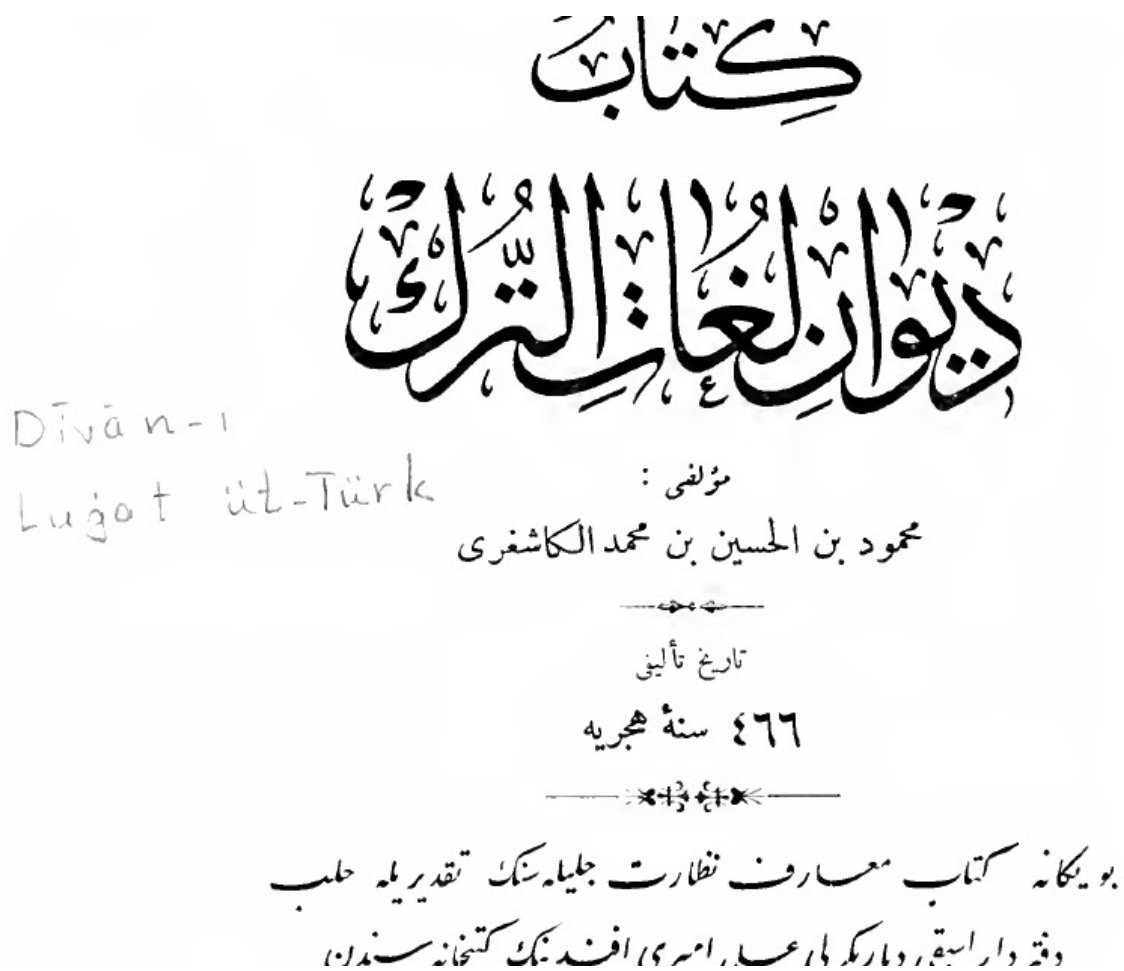 كِتَابُ
دِيْوَانِ لُغَاتِ التُّرْكِ
Dīvān-ı
Luġat üt-Türk
مؤلفى :
محمود بن الحسين بن محمد الكاشغرى
تاريخ تأليفى
٤٦٦ سنهٔ هجريه
بو يكانه كتاب معارف نظارت جليله سنك تقديريله حلب
دفتردار اسبقى دياربكرلى على اميرى افندينك كتبخانه سندن